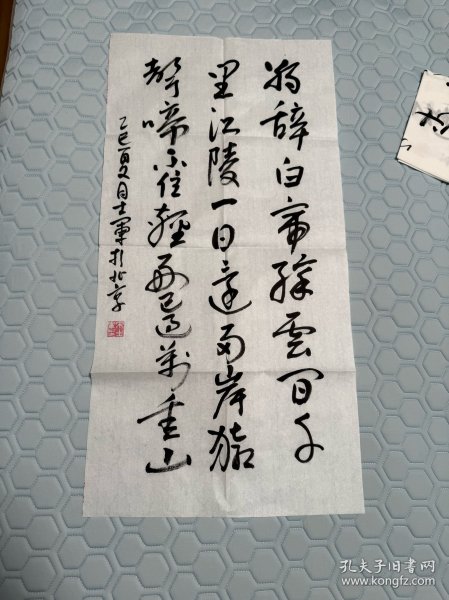 朝辞白帝綵雲间千
里江陵一日還两岸猿
聲啼不住輕舟已過萬重山
乙巳夏月士軍於北京
孔夫子旧书网
www.kongfz.com